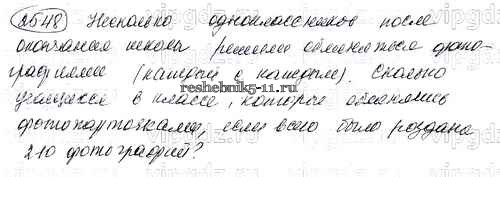 №548 Несколько одноклассников после
окончания школы решили обменяться фото-
графиями (каждый с каждым). Сколько
reshebnik5-11.ru
учащихся в классе, которые обменялись
фотокарточками, если всего было роздана
210 фотографий?